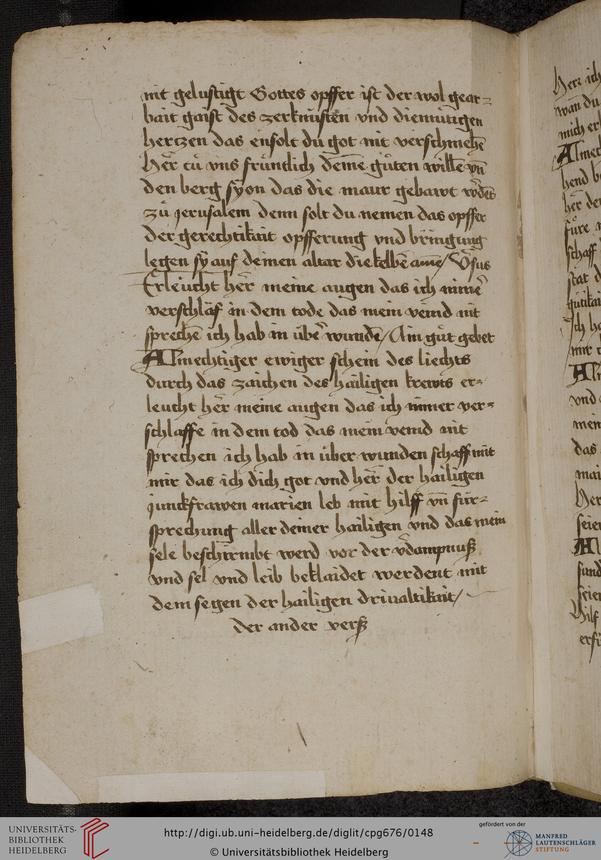 nit gelustigt Gottes opffer ist der wol gear-
bait gaist des zerknüsten vnd diemütigen
hertzen das ensolt du got nit verschmehē
Her tů vns fründlich deīme gůten willē vn̄
den berg syon das die maur gebawt wd̄ēt
zů Jerusalem denn solt du nemen das opffer
der gerechtikait opfferung vnd bringung
legen sy auf deinen altar die kelber / Vsus
Erleücht her meine augen das ich nimer
verschlaf in dem tode das mein veind nit
sprechē ich hab in über wundē / Ain gůt gebet
Almechtiger ewiger schein des liechts
durch das zaichen des hailigen krewts er-
leucht her meine augen das ich nimer ver-
schlaffe in dem tod das mein veind nit
sprechen ich hab in über wunden schaff mit
mir das ich dich got vnd her der hailigen
junckfrawen marien leb mit hilff vn̄ für-
sprechung aller deiner hailigen vnd das mein
sele beschirmbt werd vor der vdampnuß
vnd sel vnd leib beklaidet werdent mit
dem segen der hailigen driualtikait /
der ander verß
Her ich
wan du
mich er
hend b
her de
füre
schaff
stat d
gütikai
Ich h
mir
Al
vnd
mein
das
mai
Her
seier
Al
sund
seier
Hilf
UNIVERSITÄTS-
BIBLIOTHEK
HEIDELBERG
http://digi.ub.uni-heidelberg.de/diglit/cpg676/0148
© Universitätsbibliothek Heidelberg
gefördert von der
MANFRED
LAUTENSCHLÄGER
STIFTUNG